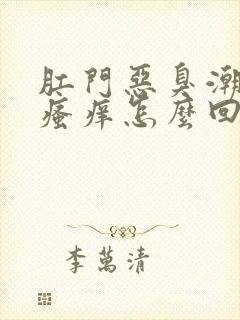 肛門惡臭潮
瘙癢怎麼回
李萬清